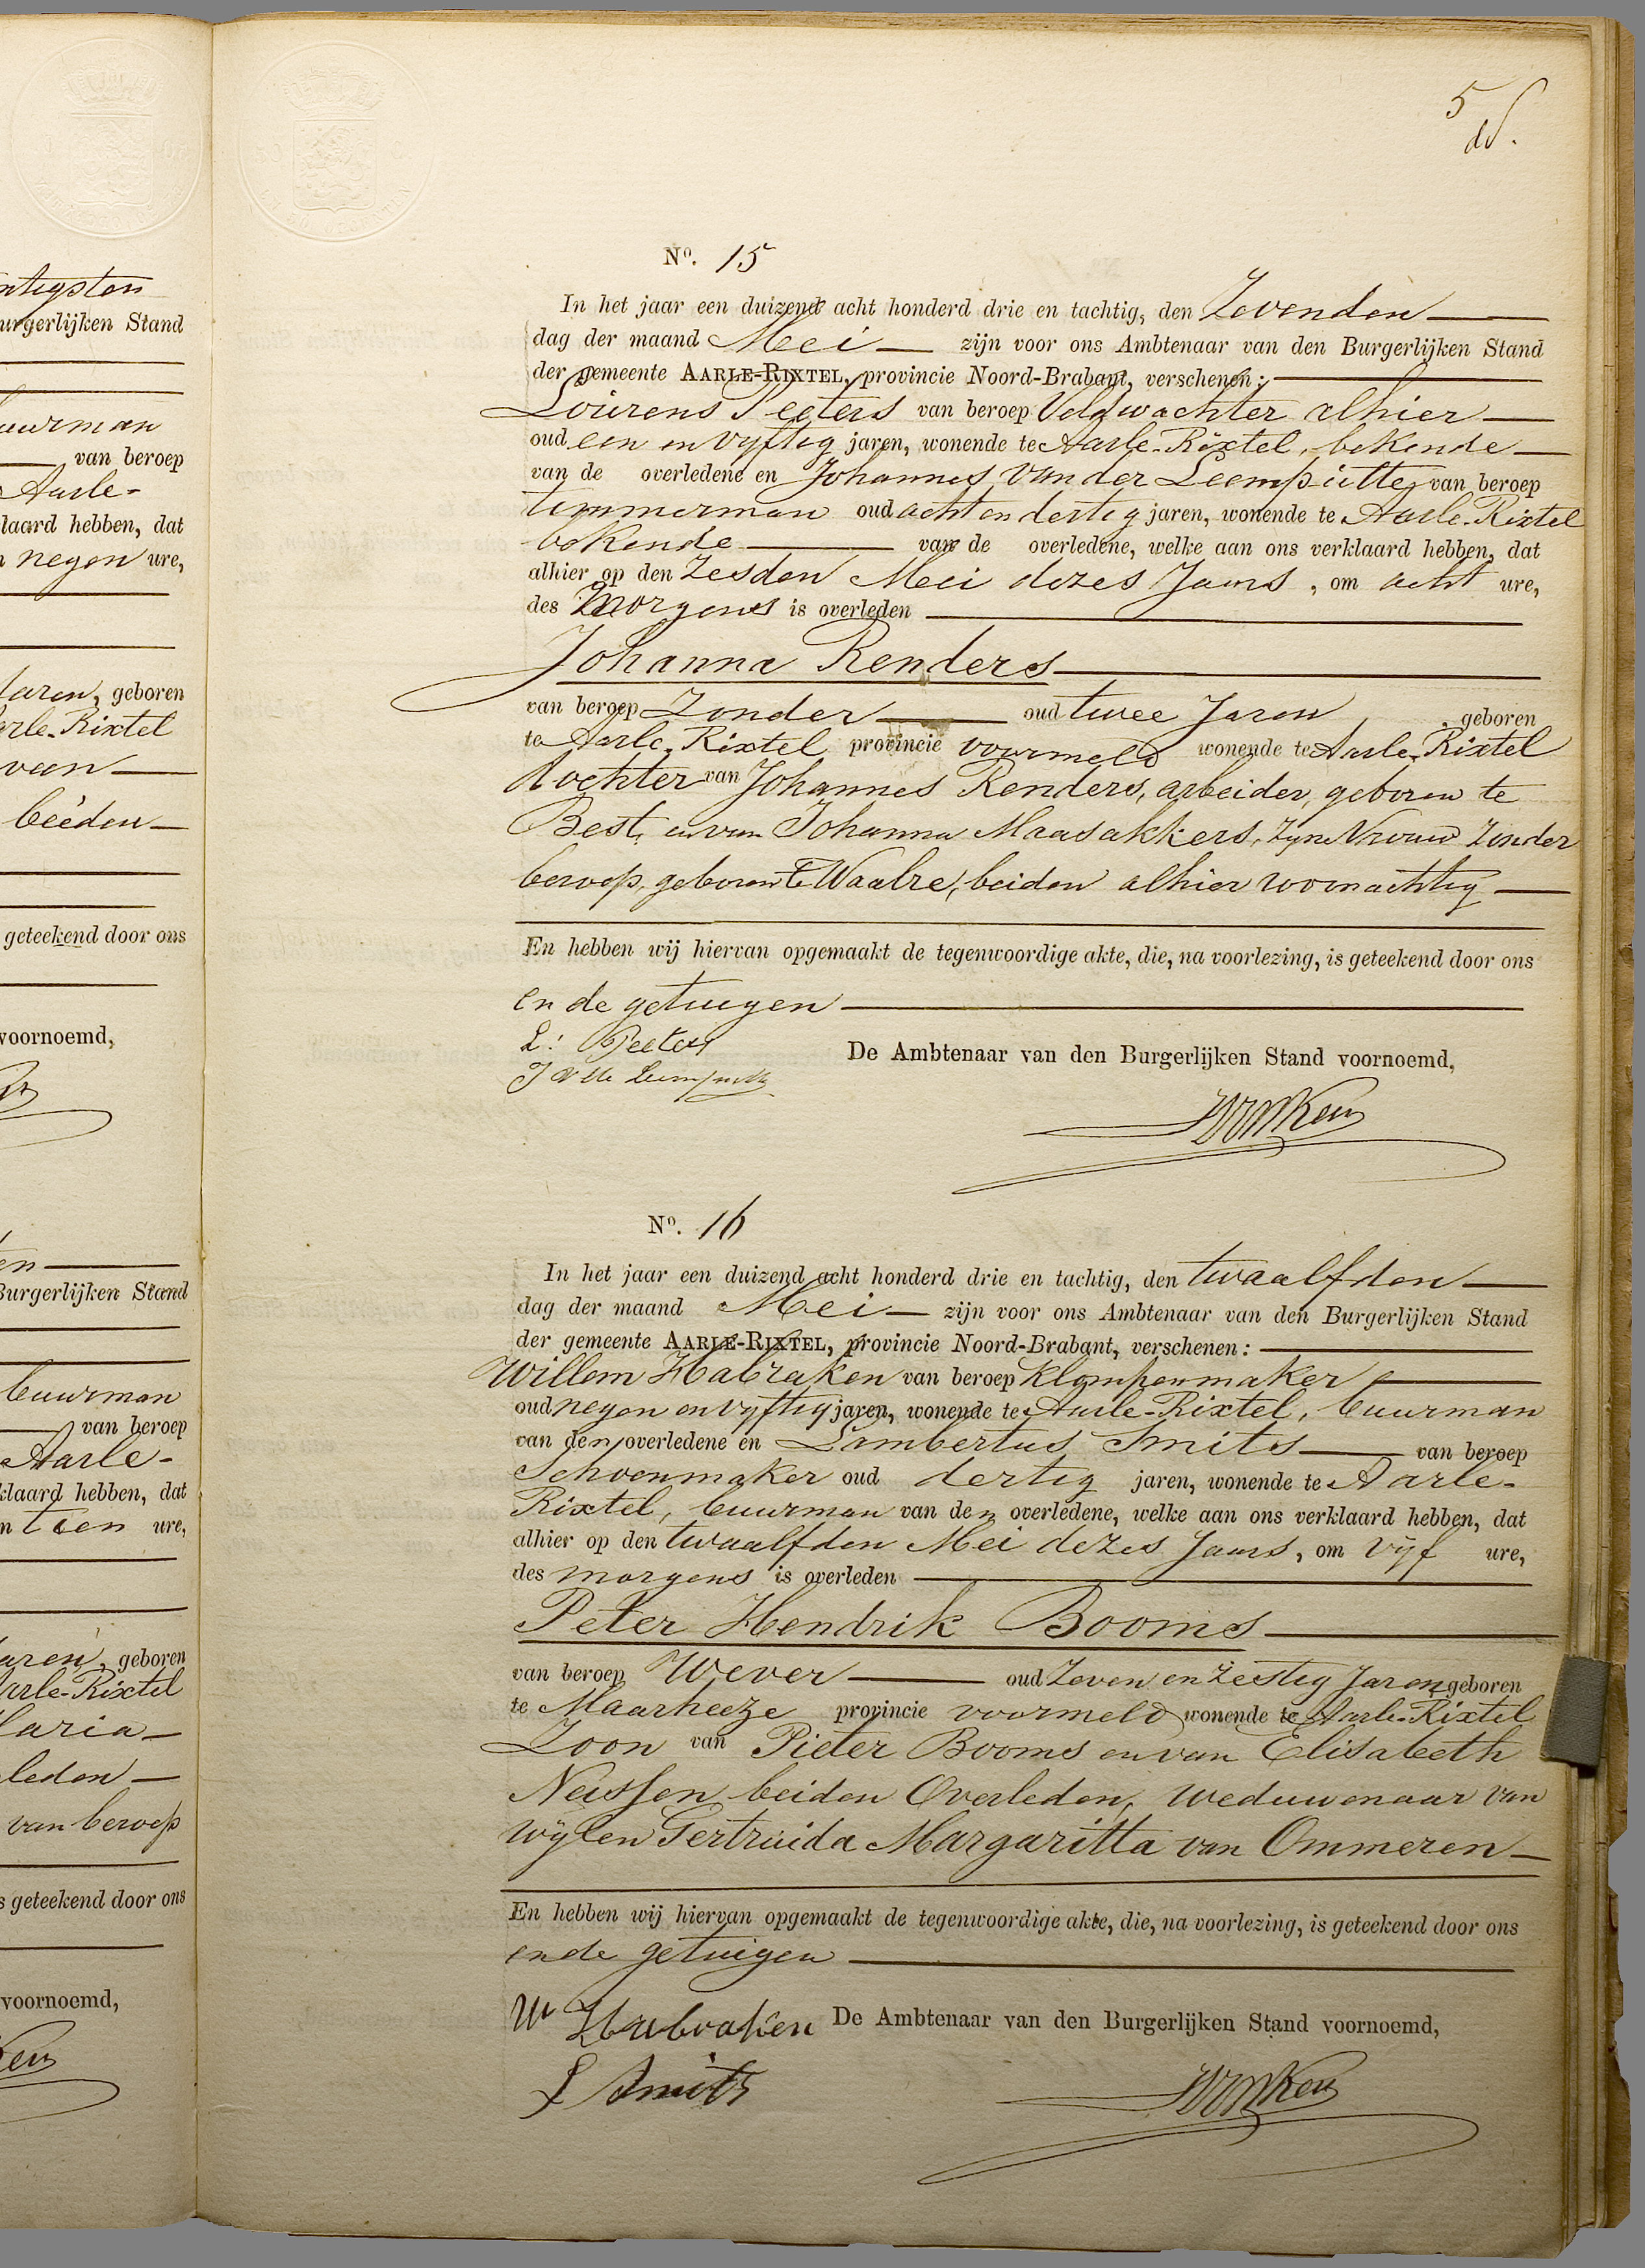 ntigsten
urgerlijken Stand
uurman
van beroep
Aarle-
laard hebben, dat
negen ure,
Jaren, geboren
arle-Rixtel
van
beéden
geteekend door ons
voornoemd,
en
Burgerlijken Stand
buurman
van beroep
Aarle-
klaard hebben, dat
n tien ure,
aren, geboren
arle-Rixtel
Maria
leden
van beroep
s geteekend door ons
voornoemd,
5
No. 15
In het jaar een duizend acht honderd drie en tachtig, den Zevenden
dag der maand Mei zijn voor ons Ambtenaar van den Burgerlijken Stand
der gemeente AARLE-RIXTEL, provincie Noord-Brabant, verschenen:
Lourens Peeters van beroep Veldwachter alhier
oud een en vyftig jaren, wonende te Aarle-Rixtel, bekende
van de overledene en Johannes van der Leemputte van beroep
timmerman oud acht en dertig jaren, wonende te Aarle-Rixtel
bekende van de overledene, welke aan ons verklaard hebben, dat
alhier op den Zesden Mei dezes Jaars, om acht ure,
des Morgens is overleden
Johanna Renders
van beroep Zonder oud twee Jaren, geboren
te Aarle-Rixtel provincie voormeld wonende te Aarle-Rixtel
dochter van Johannes Renders, arbeider, geboren te
Best, en van Johanna Maasakkers, zyne Vrouw Zonder
beroep, geboren te Waalre, beiden alhier woonachtig
En hebben wij hiervan opgemaakt de tegenwoordige akte, die, na voorlezing, is geteekend door ons
en de getuigen
L: Peeters
De Ambtenaar van den Burgerlijken Stand voornoemd,
J v de Leemputte
No. 16
In het jaar een duizend acht honderd drie en tachtig, den twaalfden
dag der maand Mei zijn voor ons Ambtenaar van den Burgerlijken Stand
der gemeente AARLE-RIXTEL, provincie Noord-Brabant, verschenen:
Willem Habraken van beroep Klompenmaker
oud negen en vyftig jaren, wonende te Aarle-Rixtel, buurman
van den overledene en Lambertus Smits van beroep
Schoenmaker oud dertig jaren, wonende te Aarle-
Rixtel, buurman van den overledene, welke aan ons verklaard hebben, dat
alhier op den twaalfden Mei dezes Jaars, om vyf ure,
des morgens is overleden
Peter Hendrik Booms
van beroep Wever oud Zeven en Zestig Jaren geboren
te Maarheeze provincie voormeld wonende te Aarle-Rixtel
Zoon van Pieter Booms en van Elisabeth
Neissen beiden Overleden, weduwenaar van
wylen Gertruida Margaritta van Ommeren
En hebben wij hiervan opgemaakt de tegenwoordige akte, die, na voorlezing, is geteekend door ons
en de getuigen
W Habraken De Ambtenaar van den Burgerlijken Stand voornoemd,
L Smits